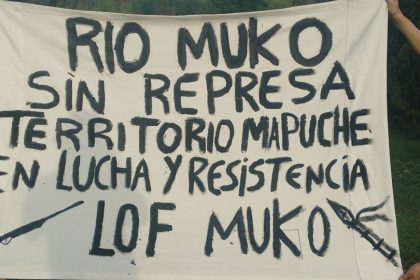 RIO MUKO
SIN REPRESA
TERRITORIO MAPUCHE
EN LUCHA Y RESISTENCIA
LOF MUKO